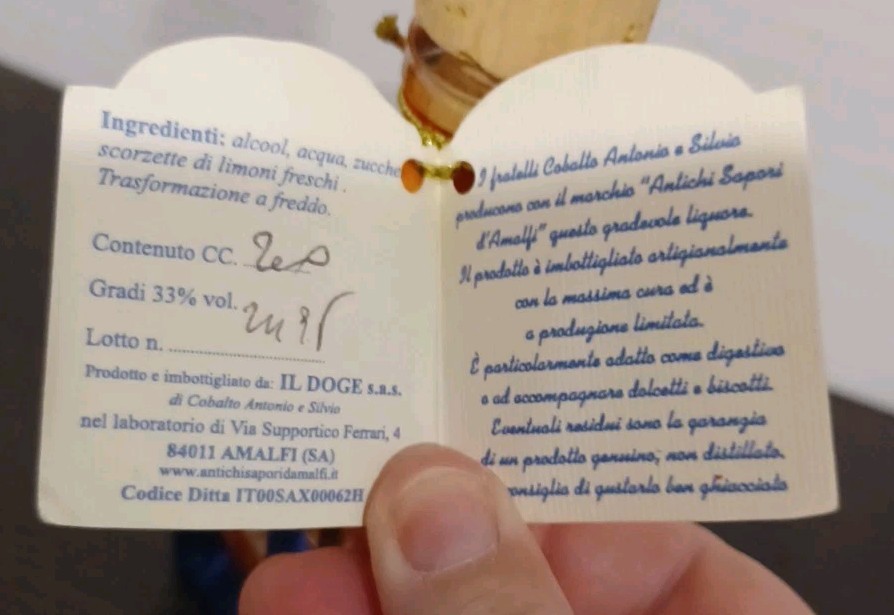 Ingredienti: alcool, acqua, zucche
scorzette di limoni freschi .
Trasformazione a freddo.
Contenuto CC.
Gradi 33% vol.
Lotto n. ........................
Prodotto e imbottigliato da: IL DOGE s.a.s.
di Cobalto Antonio e Silvio
nel laboratorio di Via Supportico Ferrari, 4
84011 AMALFI (SA)
www.antichisaporidamalfi.it
Codice Ditta IT00SAX00062H
I fratelli Cobalto Antonio e Silvio
producono con il marchio "Antichi Sapori
d'Amalfi" questo gradevole liquore.
Il prodotto è imbottigliato artigianalmente
con la massima cura ed è
a produzione limitata.
È particolarmente adatto come digestivo
e ad accompagnare dolcetti e biscotti.
Eventuali residui sono la garanzia
di un prodotto genuino; non distillato.
consiglia di gustarlo ben ghiacciato